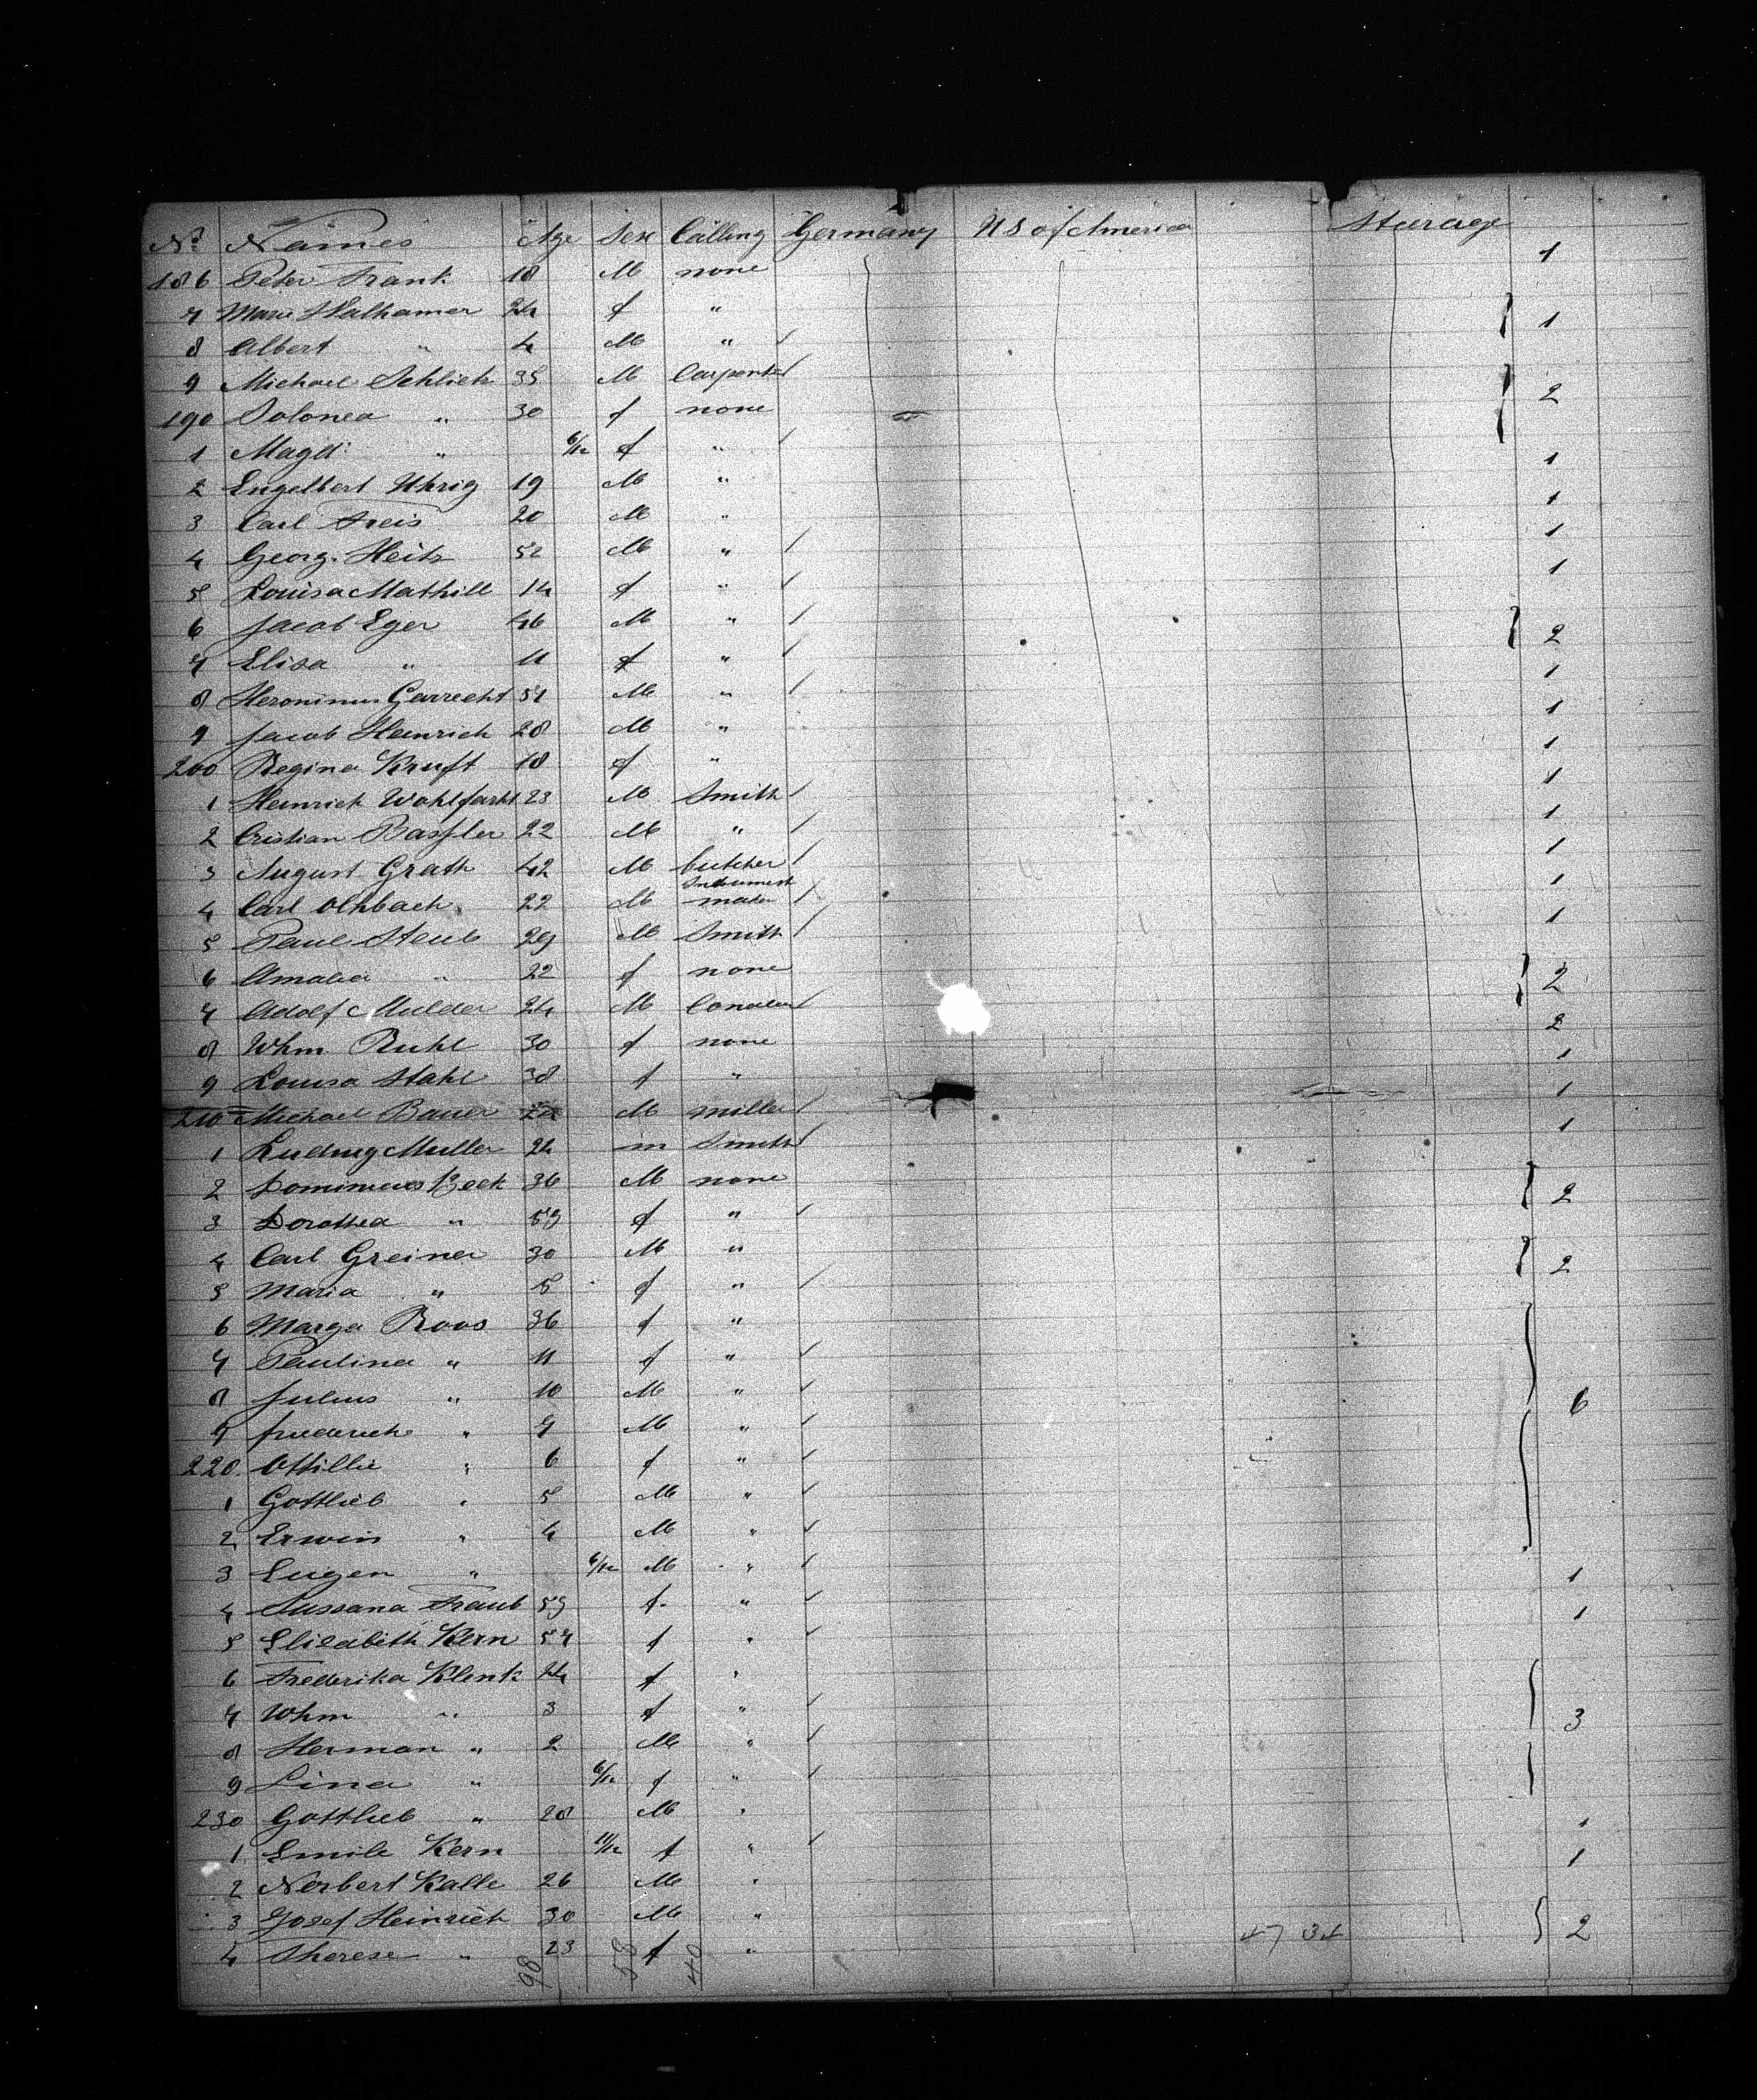 No Names Age Sex Calling Germany US of America Sturage
186 Peter Frank 18 M none 1
7 Marie Walhamer 24 f "
8 Albert " 4 M " 1
9 Michael Schlick 35 M Carpenter
190 Solonea " 30 f none 2
1 Magd: " 6/12 f "
2 Engelbert Uhrig 19 M " 1
3 Carl Freis 20 M " 1
4 Georg Heitz 52 M " 1
5 Louisa Mathill 14 f " 1
6 Jacob Eger 46 M "
7 Elisa " 11 f " 2
8 Heronimus Garrecht 57 M " 1
9 Jacob Heinrich 28 M " 1
200 Regina Kruft 18 f " 1
1 Heinrich Wohlfarht 23 M Smith 1
2 Cristian Bassler 22 M " 1
3 August Grath 42 M butcher 1
4 Carl Olhbach 22 M Instrument maker 1
5 Paul Steub 29 M Smith 1
6 Amalia " 22 f none
7 Adolf Mulder 24 M 2
8 Whm Ruhl 30 f none 2
9 Louisa Stahl 38 f " 1
210 Michael Bauer M miller 1
1 Ludwig Muller 24 m Smith 1
2 Dominicus Beck 36 M none
3 Dorothea " 53 f " 2
4 Carl Greiner 30 M "
5 Maria " 5 f " 2
6 Marga Roos 36 f "
7 Paulina " 11 f "
8 Julius " 10 M "
9 friederich " 7 M " 6
220 Ottillie " 6 f "
1 Gottlieb " 5 M "
2 Erwin " 4 M "
3 Eugen " 6/12 M "
4 Sussana Traub 53 f " 1
5 Elisabith Kern 57 f " 1
6 Frederika Klenk 24 f "
7 Whm " 3 f "
8 Herman " 2 M " 3
9 Lina " 6/12 f "
230 Gottlieb " 28 M "
1 Emile Kern 11/12 f " 1
2 Norbert Kalle 26 M " 1
3 Josef Heinrich 30 M "
4 Therese " 23 f " 47 34 2
98 58 40